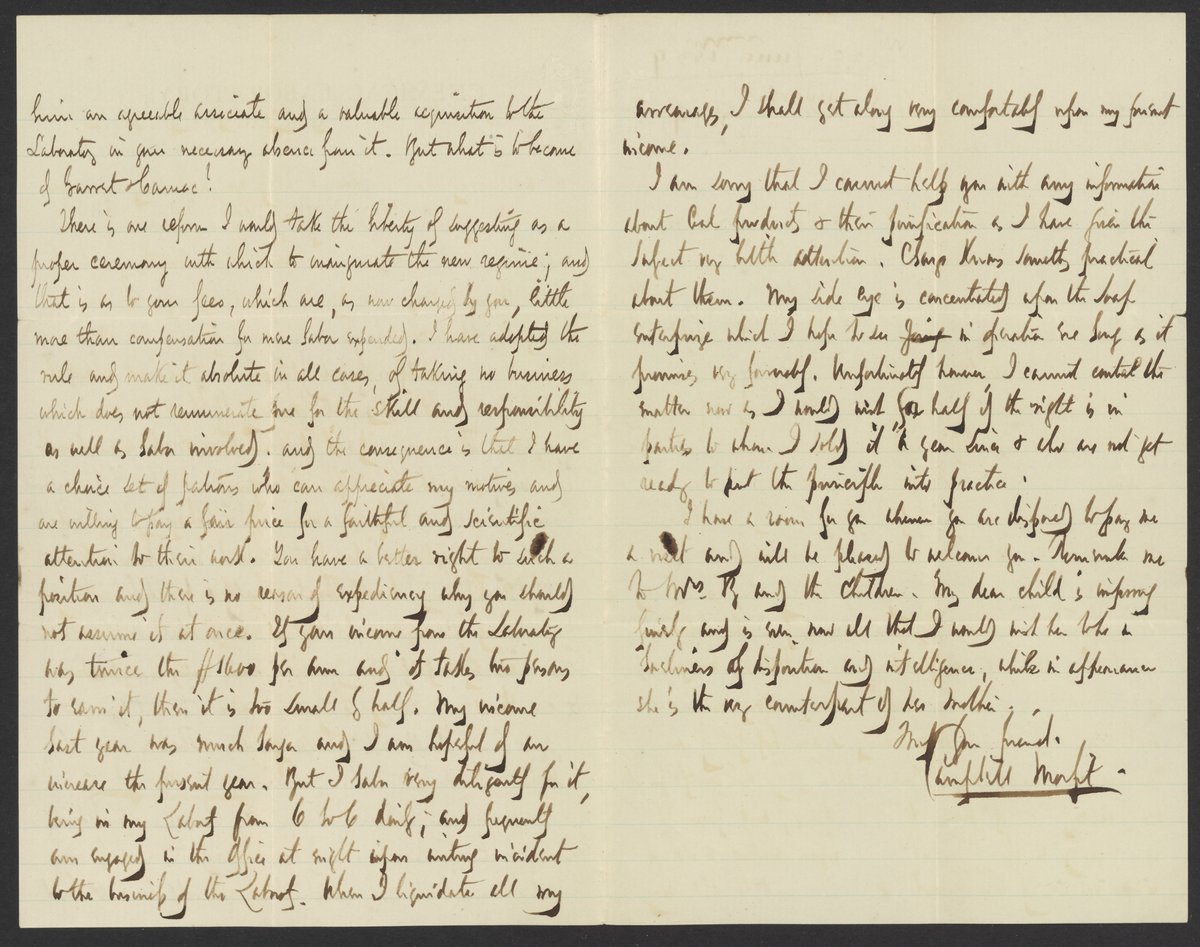 him an agreeable associate and a valuable acquisition to the
Laboratory in your necessary absence from it. But what is to become
of Garret & Camac?
There is one reform I would take the liberty of suggesting as a
proper ceremony with which to inaugurate the new regime; and
that is as to your fees, which are, as now charged by you, little
more than compensation for mere labor expended. I have adopted the
rule and make it absolute in all cases, of taking no business
which does not remunerate me for the skill and responsibility
as well as labor involved. and the consequence is that I have
a choice set of patrons who can appreciate my motives and
are willing to pay a fair price for a faithful and scientific
attention to their work. You have a better right to such a
position and there is no reason of expediency why you should
not assume it at once. If your income from the Laboratory
was twice the $1600 per ann and it takes two persons
to earn it, then it is too small by half. My income
last year was much larger and I am hopeful of an
increase the present year. But I labor very diligently for it,
being in my Laboty from 6 to 6 daily; and frequently
am engaged in the office at night upon writing incident
to the business of the Laboty. When I liquidate all my
arrearages, I shall get along very comfortably upon my present
income.
I am sorry that I cannot help you with any information
about Coal products & their purification as I have given the
subject very little attention. Knows something practical
about them. My side eye is concentrated upon the soap
enterprize which I hope to see in operation ere long as it
promises very favorably. Unfortunately however, I cannot control the
matter now as I would wish for half of the right is in
parties to whom I sold it a year since & who are not yet
ready to put the principle into practice.
I have a room for you whenever you are disposed to pay me
a visit and will be pleased to welcome you. Remember me
to Mrs. B and the children. My dear child is improving
finely and is even now all that I would wish her to be in
loveliness of disposition and intelligence, while in appearance
she is the very counterpart of her mother.
Truly Your friend.
Campbell Morfit.